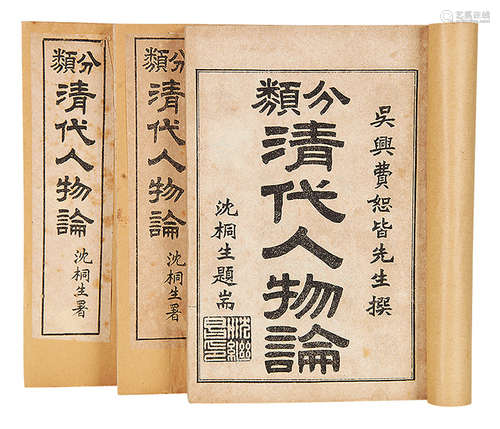 分類
清代人物論
沈桐生署
分類
清代人物論
沈桐生署
吳興費恕皆先生撰
分類
清代人物論
沈桐生題耑